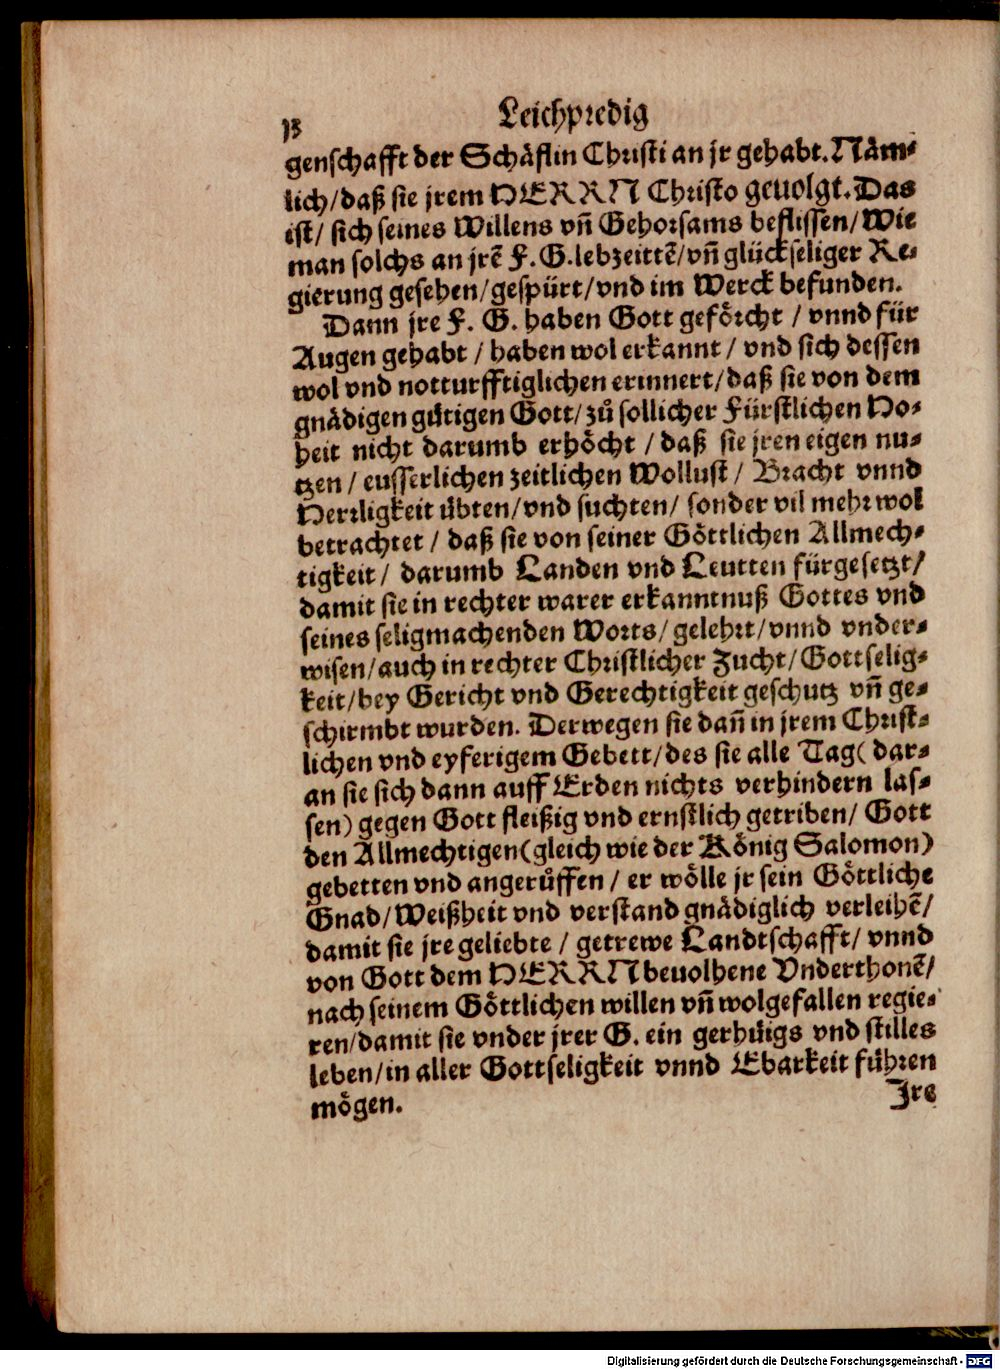 Leichpredig
genschafft der Schäflin Christi an jr gehabt. Näm⸗
lich/daß sie jrem HERRN Christo geuolgt. Das
ist/ sich seines Willens vñ Gehorsams beflissen/ Wie
man solchs an jrẽ F. G. lebzeittẽ/vñ glückseliger Re⸗
gierung gesehen/gespürt/vnd im Werck befunden.
Dann jre F. G. haben Gott geförcht / vnnd für
Augen gehabt / haben wol erkannt / vnd sich dessen
wol vnd notturfftiglichen erinnert/daß sie von dem
gnädigen gütigen Gott/ zů sollicher Fürstlichen Ho⸗
heit nicht darumb erhöcht / daß sie jren eigen nu⸗
tzen / eusserlichen zeitlichen Wollust / Bracht vnnd
Herrligkeit übten/vnd suchten/ sonder vil mehr wol
betrachtet / daß sie von seiner Göttlichen Allmech⸗
tigkeit/ darumb Landen vnd Leutten fürgesetzt/
damit sie in rechter warer erkanntnuß Gottes vnd
seines seligmachenden Worts/ gelehrt/vnnd vnder⸗
wisen/auch in rechter Christlicher Zucht/Gottselig⸗
keit/bey Gericht vnd Gerechtigkeit geschutz vñ ge⸗
schirmbt wurden. Derwegen sie dañ in jrem Christ⸗
lichen vnd eyferigem Gebett/des sie alle Tag( dar⸗
an sie sich dann auff Erden nichts verhindern las⸗
sen) gegen Gott fleißig vnd ernstlich getriben/ Gott
den Allmechtigen(gleich wie der König Salomon)
gebetten vnd angerůffen / er wölle jr sein Göttliche
Gnad/Weißheit vnd verstand gnädiglich verleihẽ/
damit sie jre geliebte / getrewe Landtschafft/ vnnd
von Gott dem HERRN beuolhene Vnderthonẽ/
nach seinem Göttlichen willen vñ wolgefallen regie⸗
ren/damit sie vnder jrer G. ein gerhüigs vnd stilles
leben/in aller Gottseligkeit vnnd Ebarkeit führen
mögen.
Jre
Digitalisierung gefördert durch die Deutsche Forschungsgemeinschaft - DFG